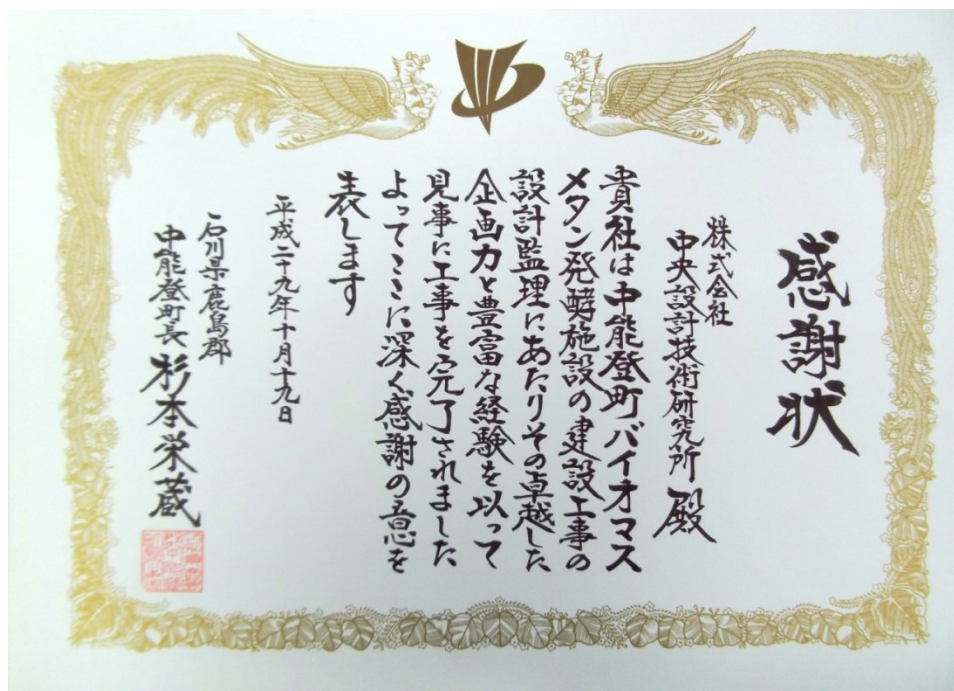 感謝状
株式会社
中央設計技術研究所 殿
貴社は中能登町バイオマス
メタン発酵施設の建設工事の
設計監理にあたりその卓越した
企画力と豊富な経験を以って
見事に工事を完了されました
よってここに深く感謝の意を
表します
平成二十九年十月十九日
石川県鹿島郡
中能登町長 杉本栄蔵